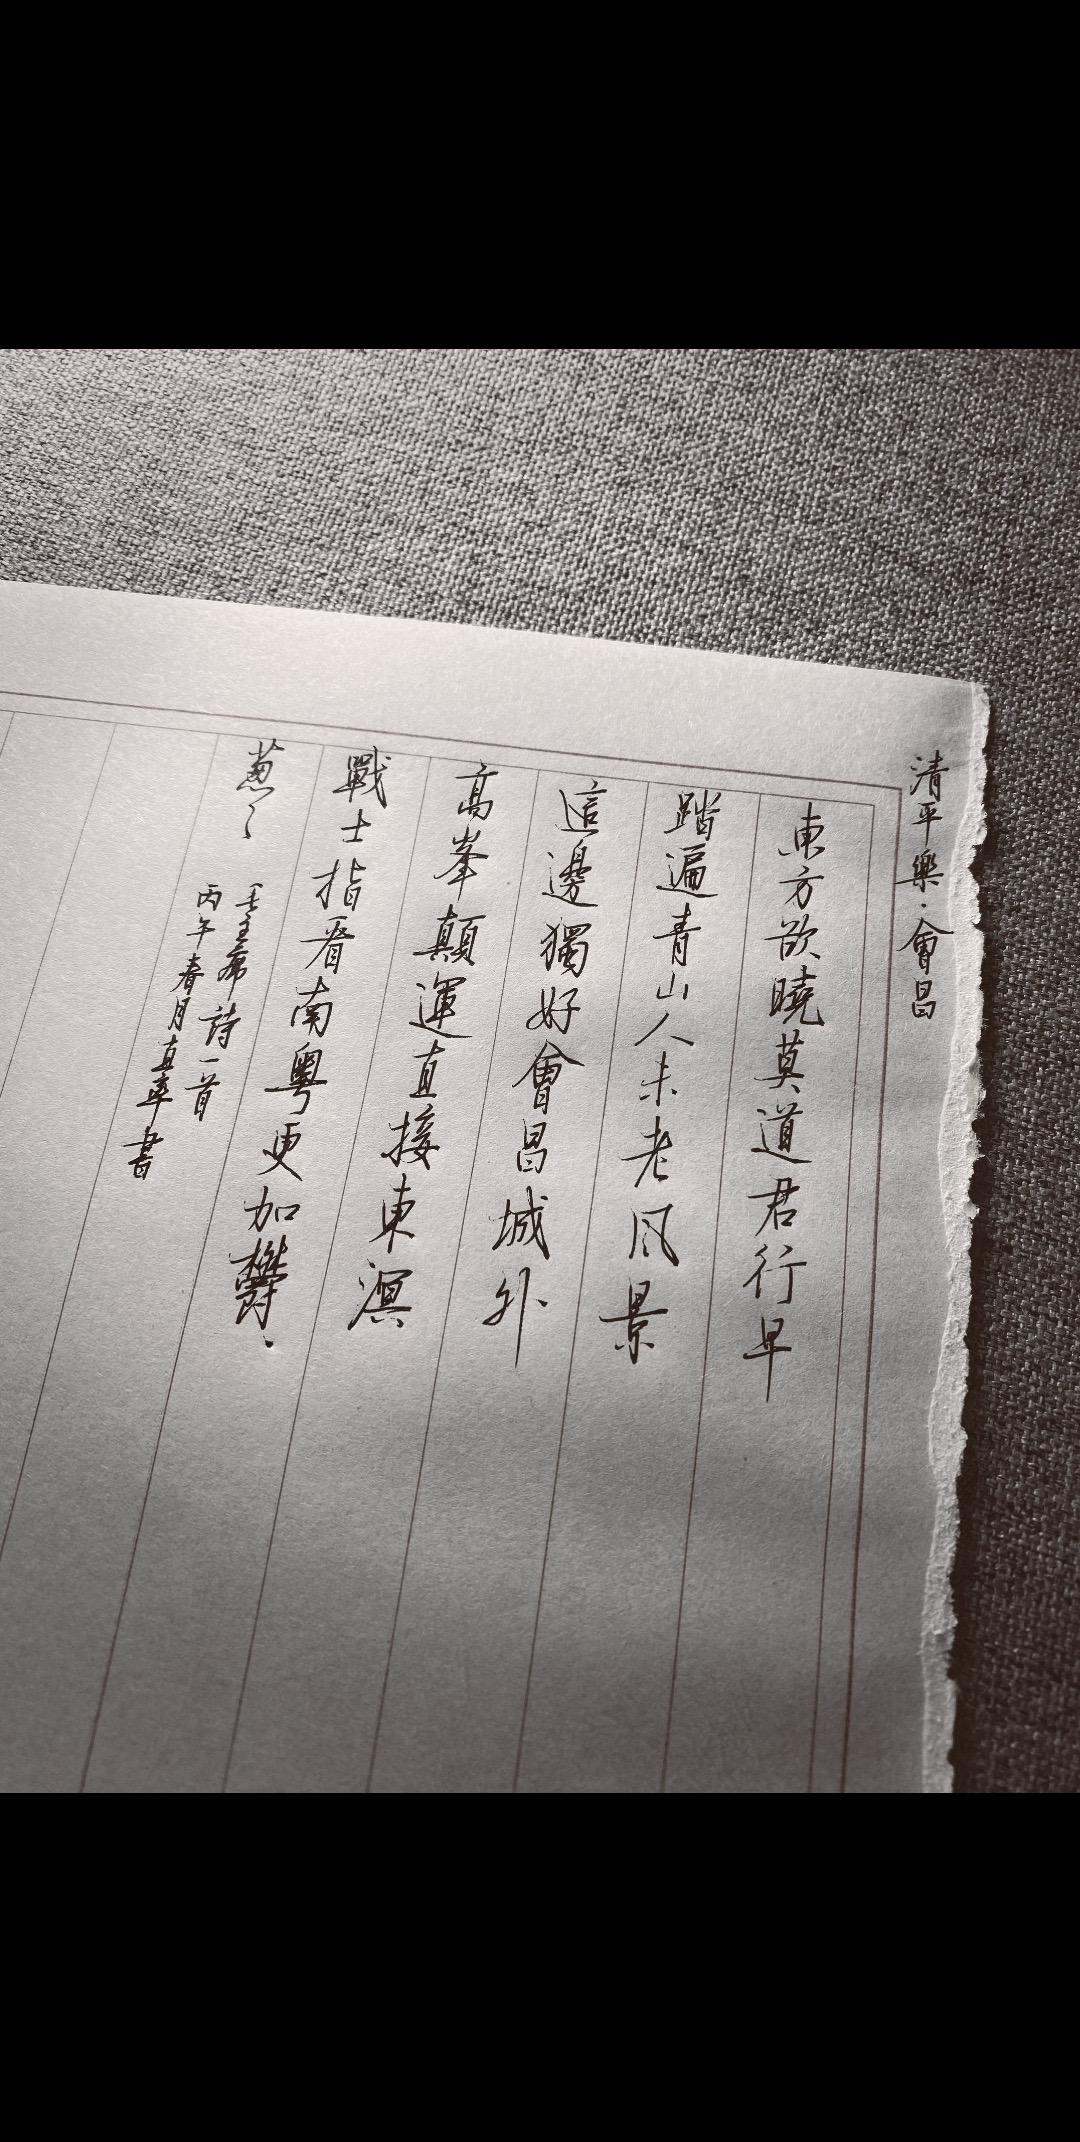 清平樂·會昌
東方欲曉莫道君行早
踏遍青山人未老風景
這邊獨好會昌城外
高峯顛連直接東溟
戰士指看南粵更加鬱·
葱々
毛主席詩一首
丙午春月直率書